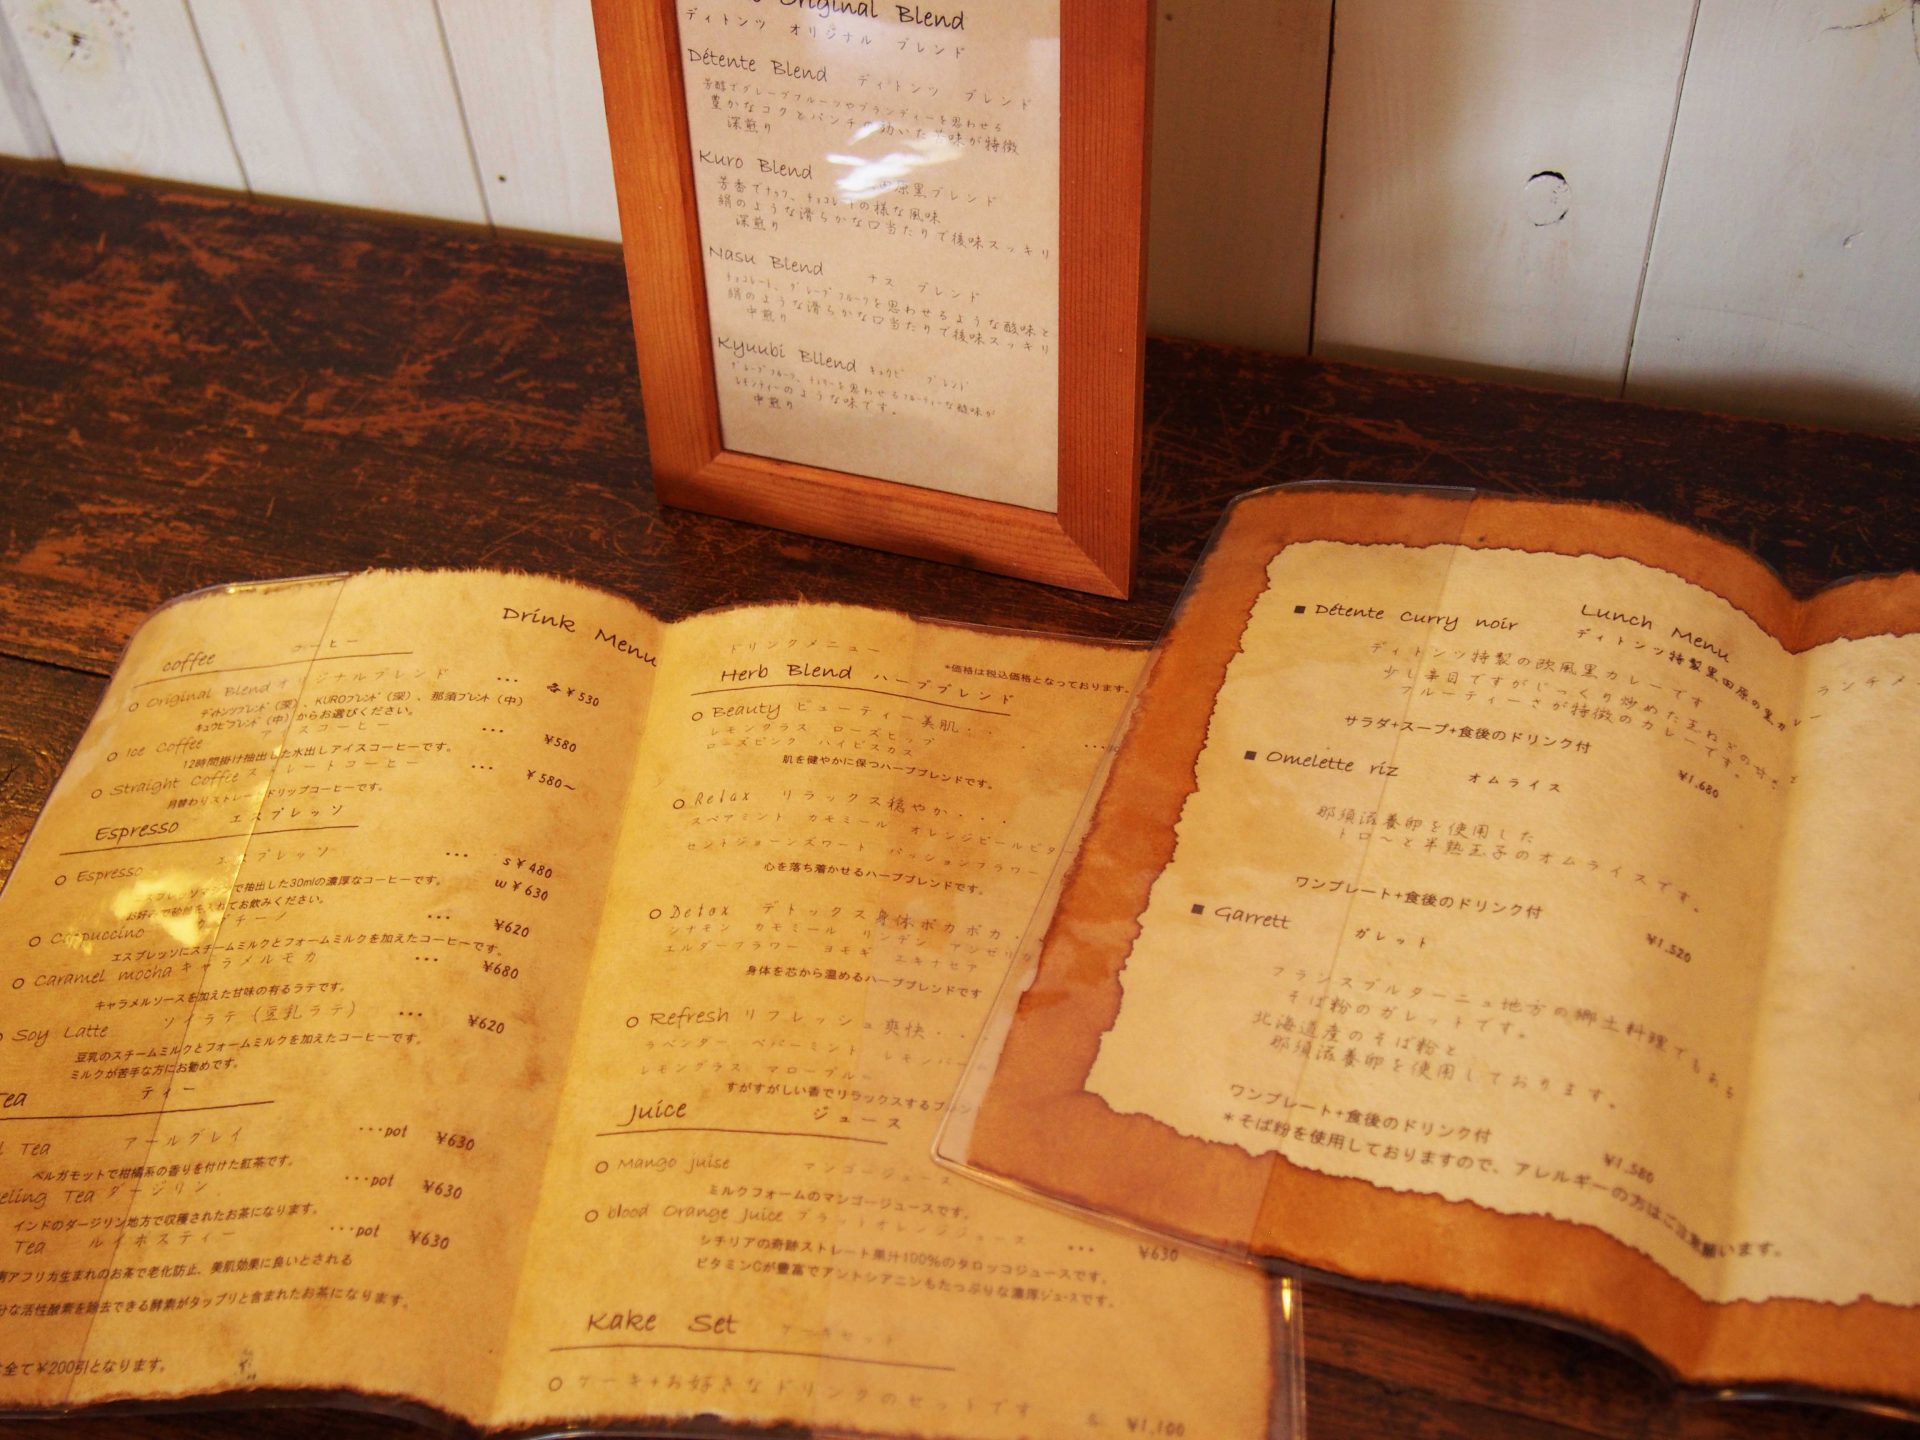 Original Blend
ディトンツ オリジナル ブレンド
Détente Blend ディトンツ ブレンド
芳醇でグレープフルーツやブランディーを思わせる
豊かなコクとパンチの効いた苦味が特徴
深煎り
Kuro Blend 田原黒ブレンド
芳香でナッツ、チョコレートの様な風味
絹のような滑らかな口当たりで後味スッキリ
深煎り
Nasu Blend ナス ブレンド
チョコレート、グレープフルーツを思わせるような酸味と
絹のような滑らかな口当たりで後味スッキリ
中煎り
Kyuubi Bllend キュウビ ブレンド
グレープフルーツ、チェリーを思わせるフルーティーな酸味が
レモンティーのような味です。
中煎り
Drink Menu
ドリンクメニュー
*価格は税込価格となっております。
coffee コーヒー
○ Original Blend オリジナルブレンド ・・・ 各¥530
ディトンツブレンド（深）、KUROブレンド（深）、那須ブレンド（中）
キュウビブレンド（中）からお選びください。
○ Ice Coffee アイスコーヒー ・・・ ¥580
12時間掛け抽出した水出しアイスコーヒーです。
○ Straight Coffee ストレートコーヒー ・・・ ¥580～
月替わりストレートドリップコーヒーです。
Espresso エスプレッソ
○ Espresso エスプレッソ ・・・ s¥480
w¥630
エスプレッソマシンで抽出した30mlの濃厚なコーヒーです。
お好みで砂糖を入れてお飲みください。
○ Cappuccino カプチーノ ・・・ ¥620
エスプレッソにスチームミルクとフォームミルクを加えたコーヒーです。
○ Caramel mocha キャラメルモカ ・・・ ¥680
キャラメルソースを加えた甘味の有るラテです。
○ Soy Latte ソイラテ（豆乳ラテ） ・・・ ¥620
豆乳のスチームミルクとフォームミルクを加えたコーヒーです。
ミルクが苦手な方にお勧めです。
Tea ティー
Tea アールグレイ ・・・pot ¥630
ベルガモットで柑橘系の香りを付けた紅茶です。
Tea ダージリン ・・・pot ¥630
インドのダージリン地方で収穫されたお茶になります。
Tea ルイボスティー ・・・pot ¥630
アフリカ生まれのお茶で老化防止、美肌効果に良いとされる
な活性酸素を除去できる酵素がタップリと含まれたお茶になります。
全て¥200引となります。
Herb Blend ハーブブレンド
○ Beauty ビューティー美肌・・・
レモングラス ローズヒップ
ローズピンク ハイビスカス
肌を健やかに保つハーブブレンドです。
○ Relax リラックス穏やか・・・
スペアミント カモミール オレンジピールビター
セントジョーンズワート パッションフラワー
心を落ち着かせるハーブブレンドです。
○ Detox デトックス身体ポカポカ・・
シナモン カモミール リンデン アンゼリカ
エルダーフラワー ヨモギ エキナセア
身体を芯から温めるハーブブレンドです
○ Refresh リフレッシュ爽快・・
ラベンダー ペパーミント レモンバーム
レモングラス マローブルー
すがすがしい香でリラックスするブレン
Juice ジュース
○ Mango juise マンゴージュース
ミルクフォームのマンゴージュースです。
○ blood Orange juice ブラットオレンジジュース ・・・ ¥630
シチリアの奇跡ストレート果汁100%のタロッコジュースです。
ビタミンCが豊富でアントシアニンもたっぷりな濃厚ジュースです。
Kake Set ケーキセット
○ ケーキ+お好きなドリンクのセットです 各 ¥1,100
Lunch Menu
ランチメ
■ Détente curry noir ディトンツ特製黒田原の黒カレー
ディトンツ特製の欧風黒カレーです
少し辛目ですがじっくり炒めた玉ねぎの甘さと
フルーティーさが特徴のカレーです。
サラダ+スープ+食後のドリンク付 ¥1,680
■ Omelette riz オムライス
那須滋養卵を使用した
トロ～と半熟玉子のオムライスです。
ワンプレート+食後のドリンク付 ¥1,520
■ Garrett ガレット
フランスブルターニュ地方の郷土料理でもある
そば粉のガレットです。
北海道産のそば粉と
那須滋養卵を使用しております。
ワンプレート+食後のドリンク付 ¥1,580
*そば粉を使用しておりますので、アレルギーの方はご注意願います。